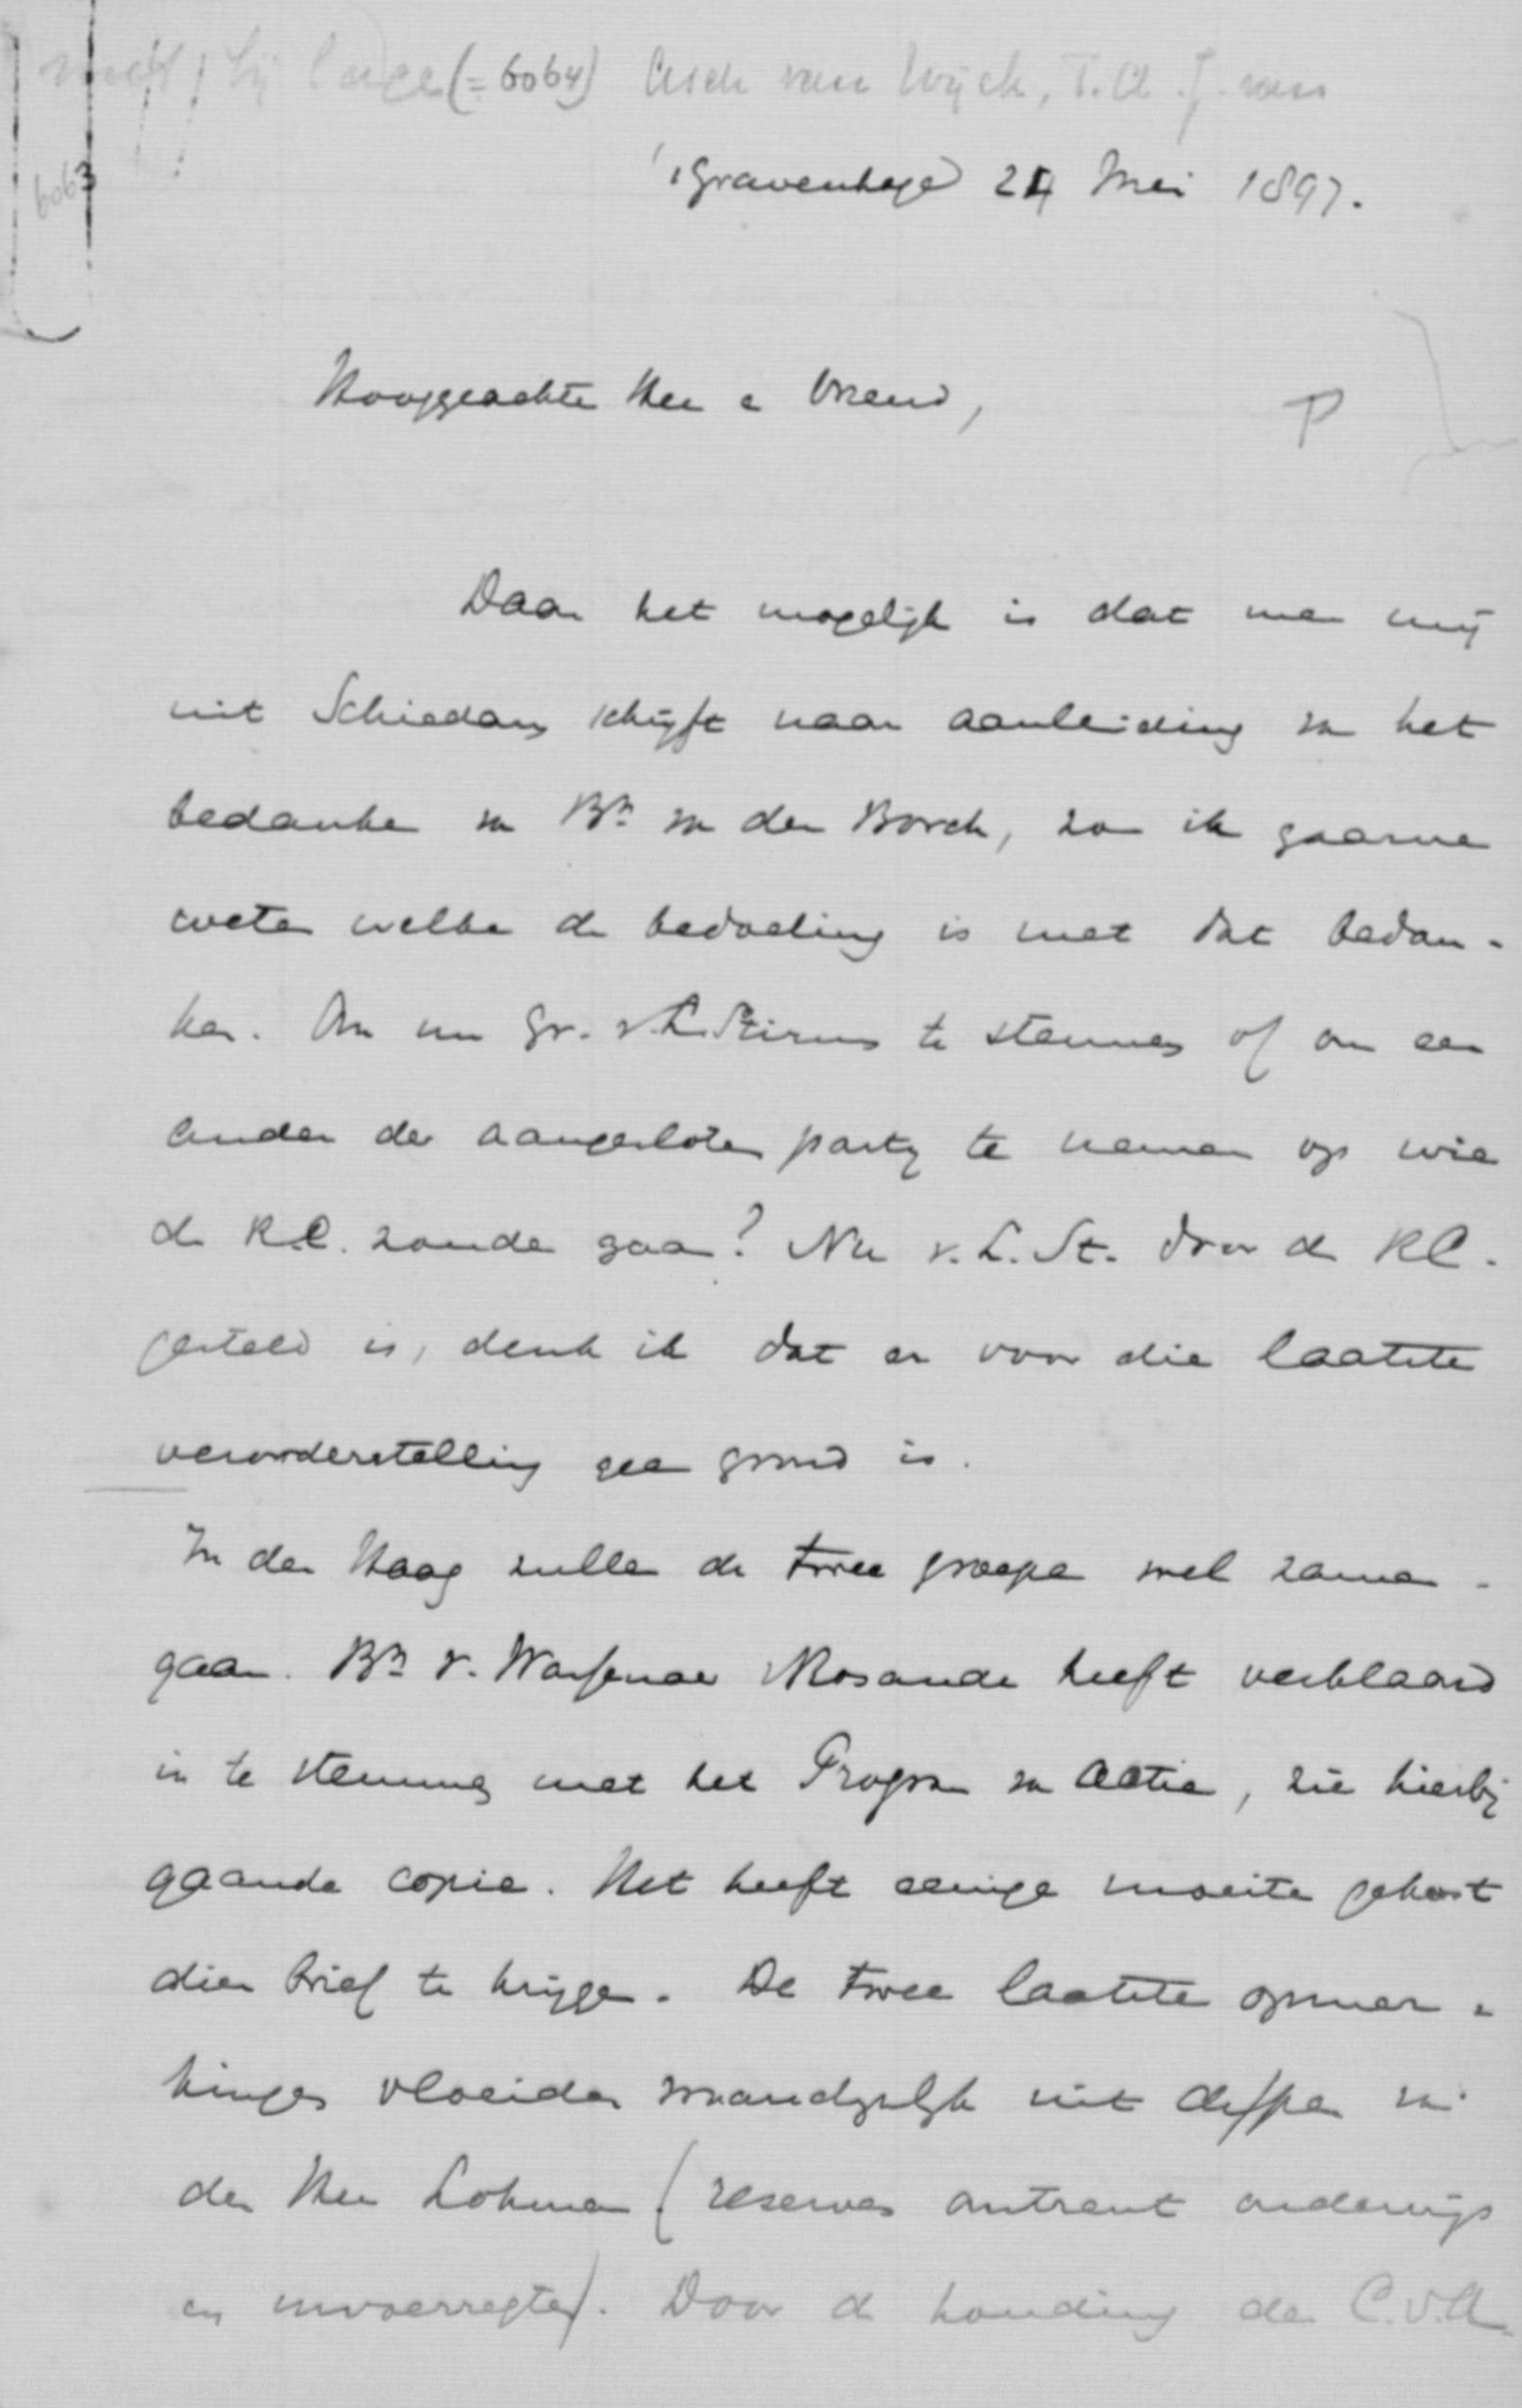 met bijlage (= 6064) Asch van Wijck, T.A.J. van
6063
'sGravenhage 24 Mei 1897.
Hooggeachte Heer & Vriend,
P
Daar het mogelijk is dat men mij
uit Schiedam schrijft naar aanleiding van het
bedanken van Bn van der Borch, zou ik gaarne
weten welke de bedoeling is met dat bedan-
ken. Om nu Gr. v. L. Stirum te stemmen of om een
ander der aangesloten partij te nemen op wie
de R.C. zouden gaan? Nu v. L. St. door de RC.
gesteld is, denk ik dat er voor die laatste
veronderstelling geen grond is.
In den Haag zullen de twee groepen wel samen-
gaan. Bn v. Wassenaer v Rosande heeft verklaard
in te stemmen met het Program van Actie, zie hierbij
gaande copie. Het heeft eenige moeite gekost
dien brief te krijgen. De twee laatste opmer-
kingen vloeiden uit de pen van
den Heer Lohman (reserves omtrent onderwijs
en invoerregten). Door de houding der C.v.A.